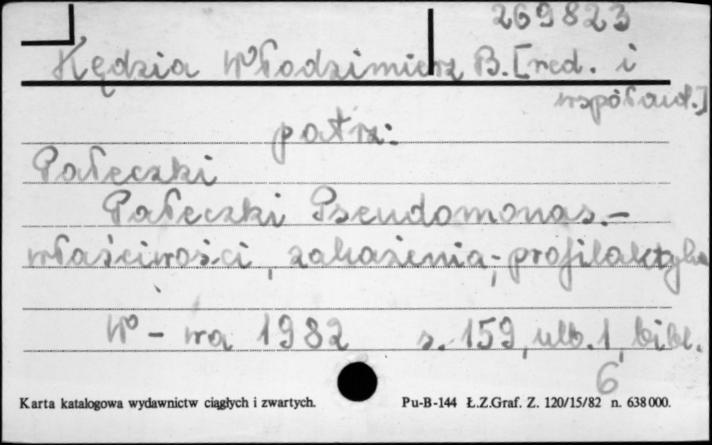 269823
Kędzia Włodzimierz B. [red. i
współaut.]
patrz:
Pałeczki
Pałeczki Pseudomonas.–
właściwości, zakażenia, profilaktyka
W-wa 1982 s. 159, ulb. 1, bibl.
6
Karta katalogowa wydawnictw ciągłych i zwartych. Pu-B-144 Ł.Z.Graf. Z. 120/15/82 n. 638000.